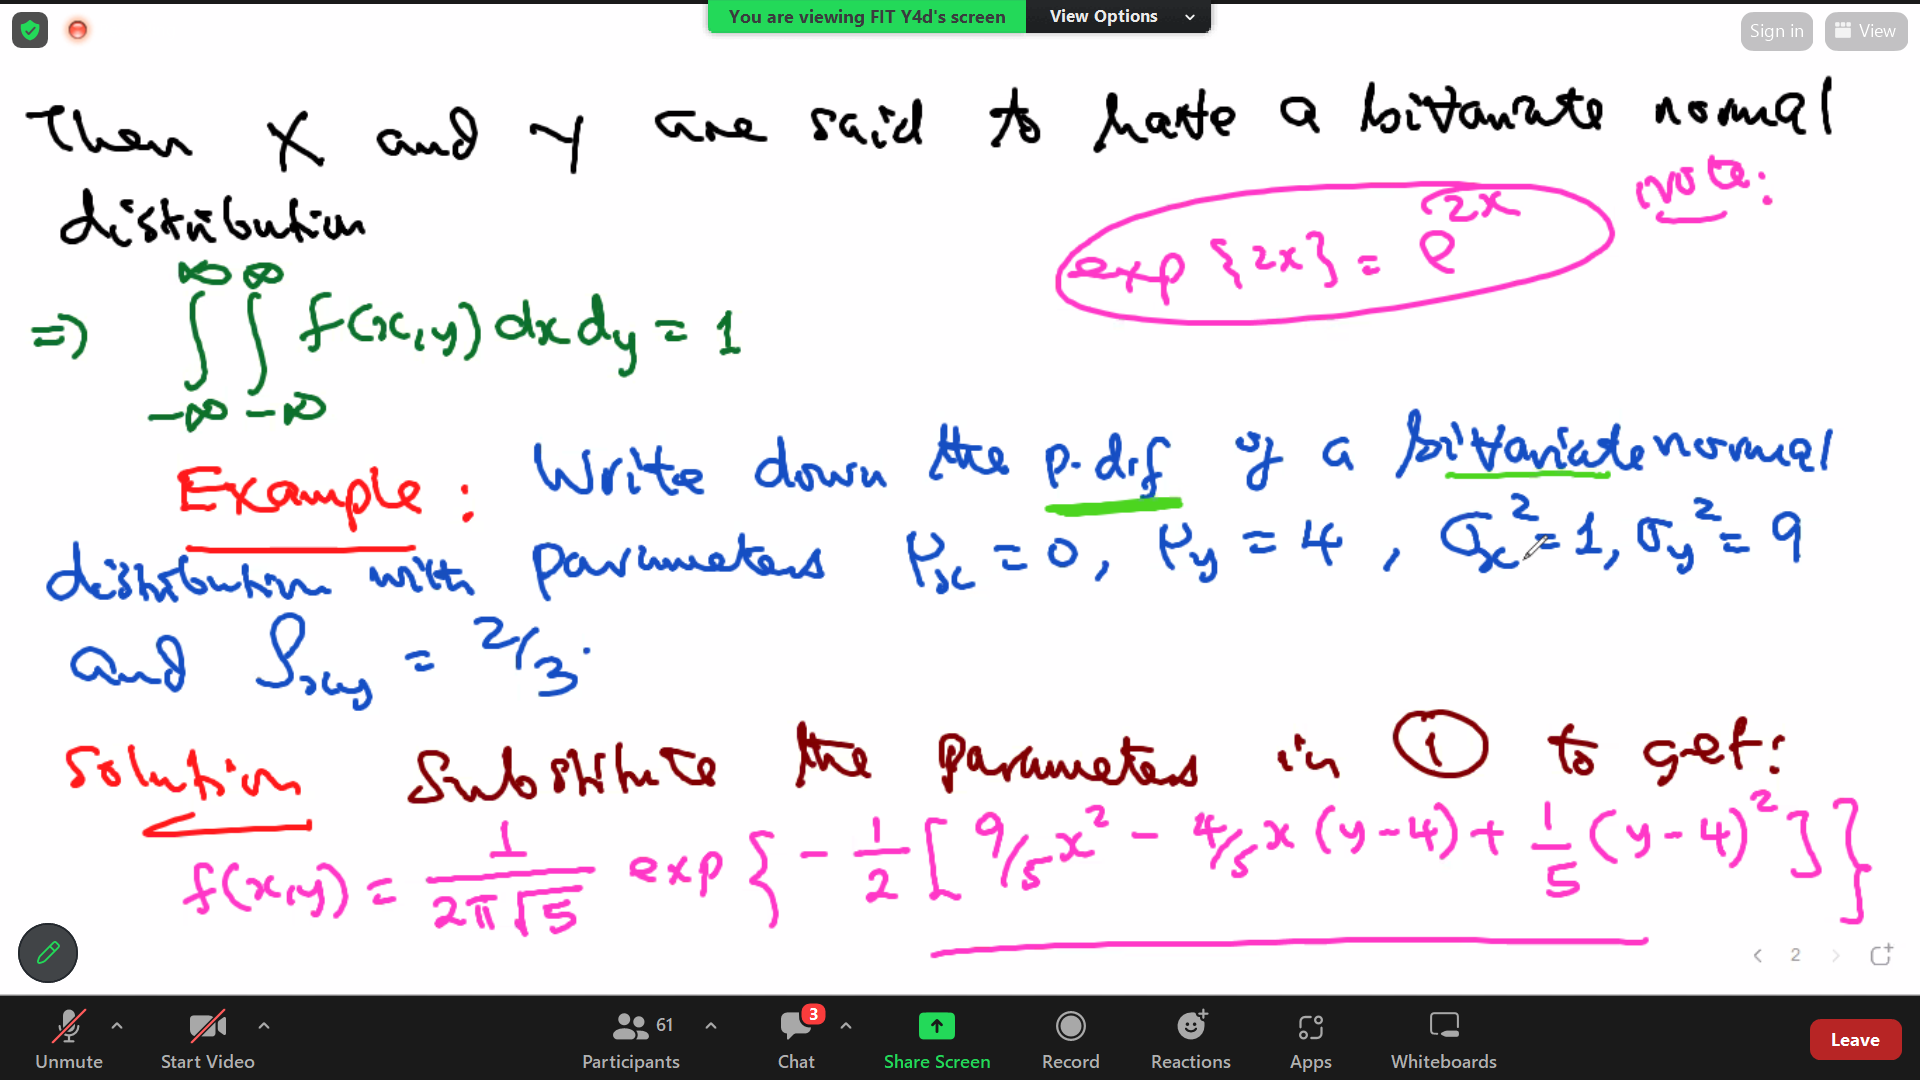 You are viewing FIT Y4d's screen View Options
Sign in View
Then X and Y are said to have a bivariate normal
distribution
note:
exp {2x} = e^{2x}
=> ∫_{-∞}^{∞} ∫_{-∞}^{∞} f(x,y) dx dy = 1
Example: Write down the p.d.f of a bivariate normal
distribution with parameters μ_x = 0, μ_y = 4, σ_x² = 1, σ_y² = 9
and ρ_xy = 2/3.
Solution Substitute the parameters in ① to get:
f(x,y) = 1/(2π√5) exp { - 1/2 [ 9/5 x² - 4/5 x (y-4) + 1/5 (y-4)² ] }
2
61 3
Unmute Start Video Participants Chat Share Screen Record Reactions Apps Whiteboards Leave